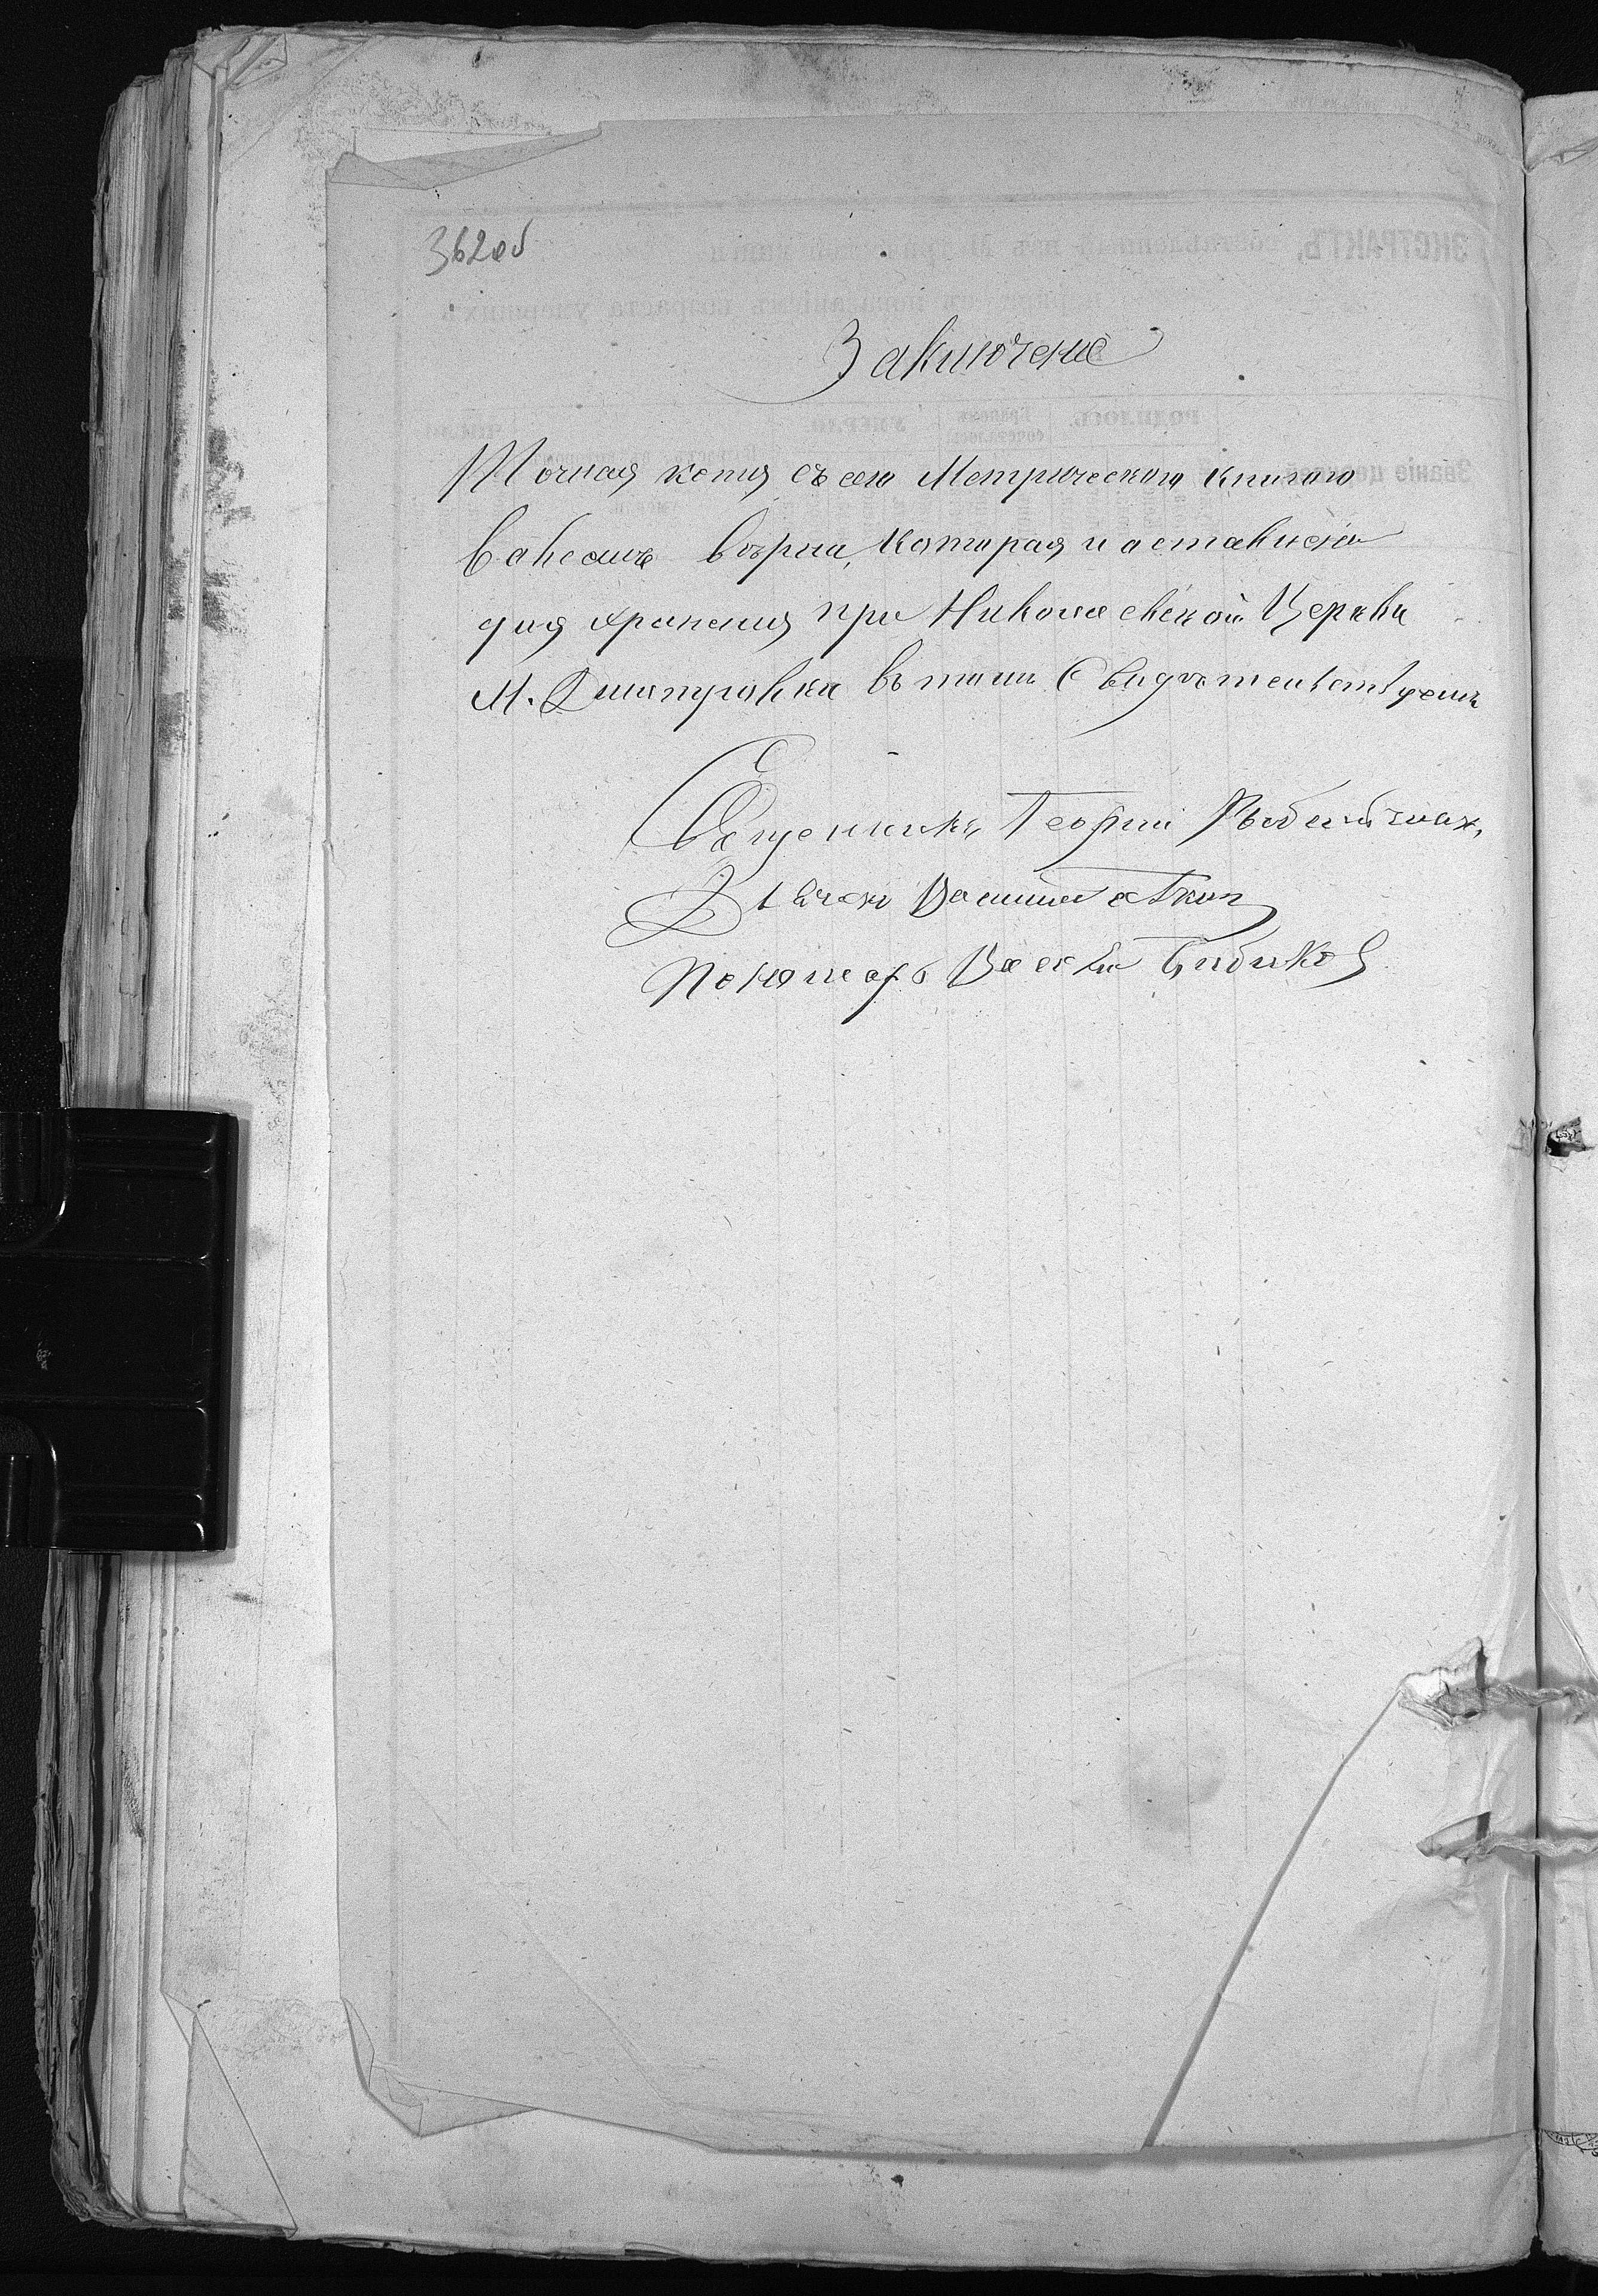 362об
Заключение
Точная копия съ сею Метрическою книгою
вовсемъ вѣрна, которая и оставлена
для храненія при Николаевской Церкви
М. Дмитровки въ томъ Свидѣтельствуемъ
Священникъ Георгій
Дьячокъ Василій
Пономарь Василій Бибиков